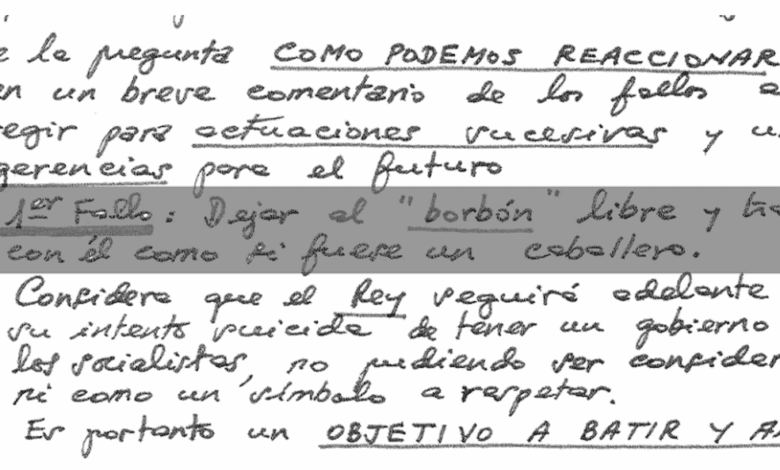 e la pregunta COMO PODEMOS REACCIONAR
en un breve comentario de los fallos a
regir para actuaciones sucesivas y u
gerencias para el futuro
1er Fallo: Dejar al "borbón" libre y tra
con él como si fuese un caballero.
Considera que el Rey seguirá adelante
su intento suicida de tener un gobierno
los socialistas, no pudiendo ser consider
ni como un símbolo a respetar.
Es portanto un OBJETIVO A BATIR Y A